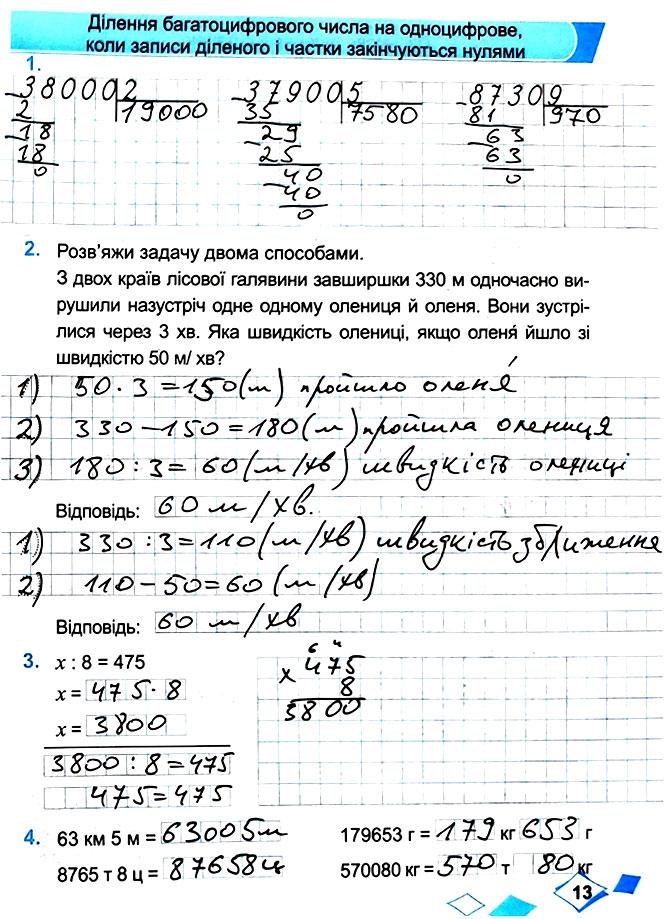 Ділення багатоцифрового числа на одноцифрове,
коли записи діленого і частки закінчуються нулями
1.
38000 2 37900 5 8730 9
2 19000 35 7580 81 970
18 29 63
18 25 63
0 40 0
40
0
2. Розв'яжи задачу двома способами.
З двох країв лісової галявини завширшки 330 м одночасно ви-
рушили назустріч одне одному олениця й оленя. Вони зустрі-
лися через 3 хв. Яка швидкість олениці, якщо оленя́ йшло зі
швидкістю 50 м/ хв?
1) 50 · 3 = 150 (м) пройшло оленя́
2) 330 – 150 = 180 (м) пройшла олениця
3) 180 : 3 = 60 (м/хв) швидкість олениці
Відповідь: 60 м/хв.
1) 330 : 3 = 110 (м/хв) швидкість зближення
2) 110 – 50 = 60 (м/хв)
Відповідь: 60 м/хв
3. x : 8 = 475
x = 475 · 8
x = 3800
3800 : 8 = 475
475 = 475
6 4
x 475
8
3800
4. 63 км 5 м = 63005м 179653 г = 179 кг 653 г
8765 т 8 ц = 87658ц 570080 кг = 570 т 80 кг
13